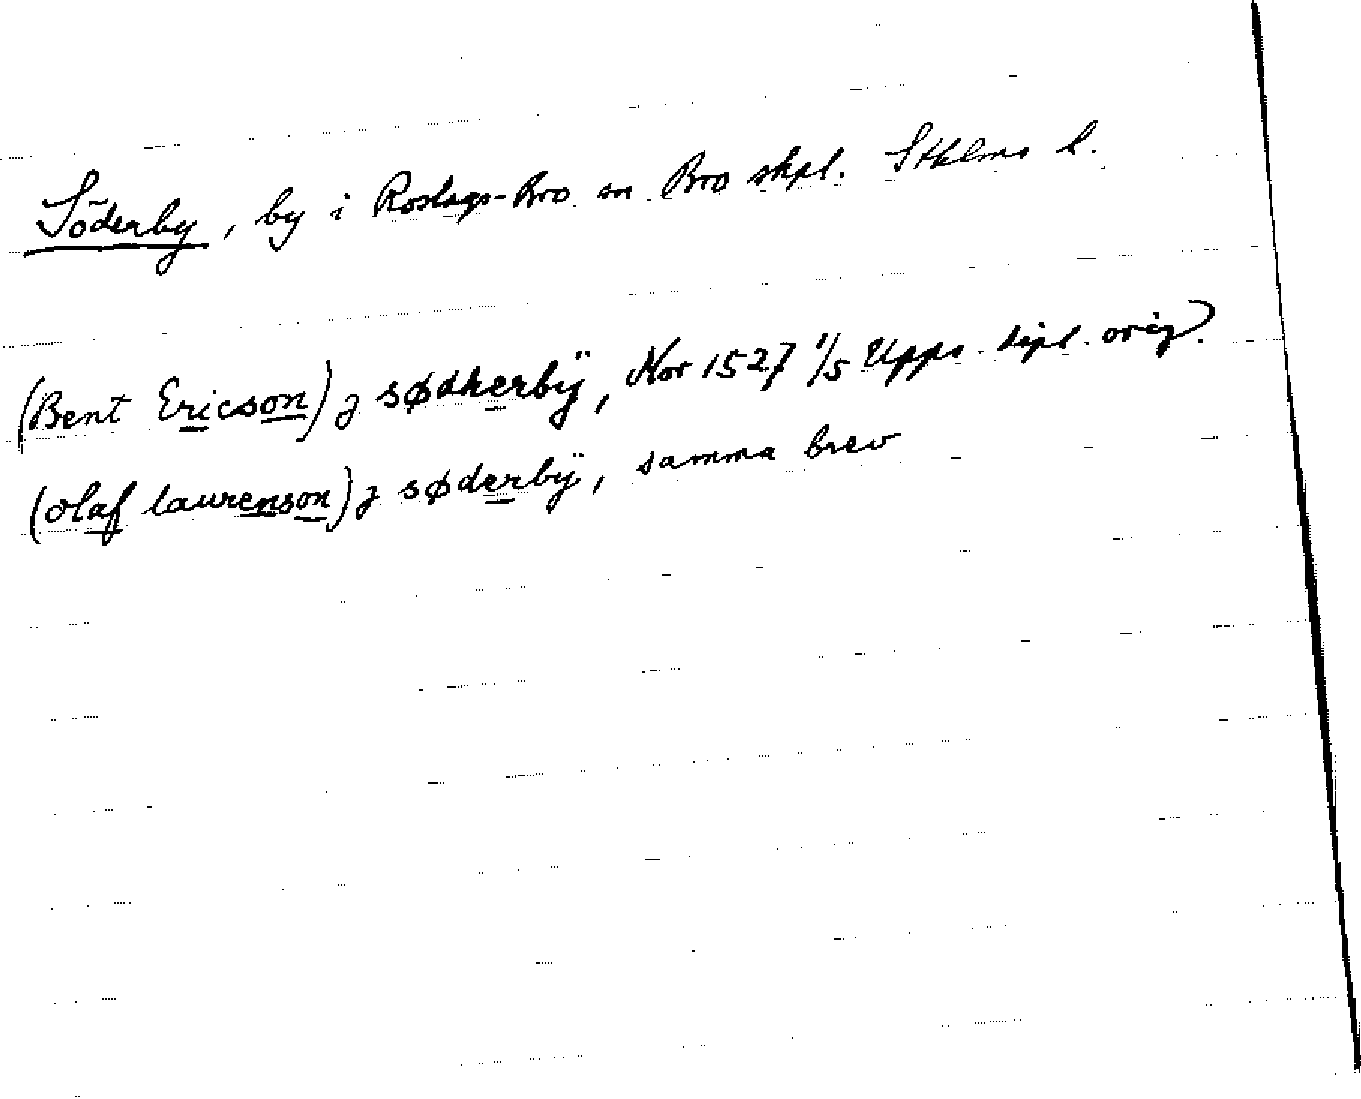 Söderby, by i Roslags-Bro sn Bro skpl. Sthlms l.
(Bent Ericson) j sødherbÿ, Nor 1527 1/5 Upps. dipl. orig.
(olaf laurenson) j søderbÿ, samma brev